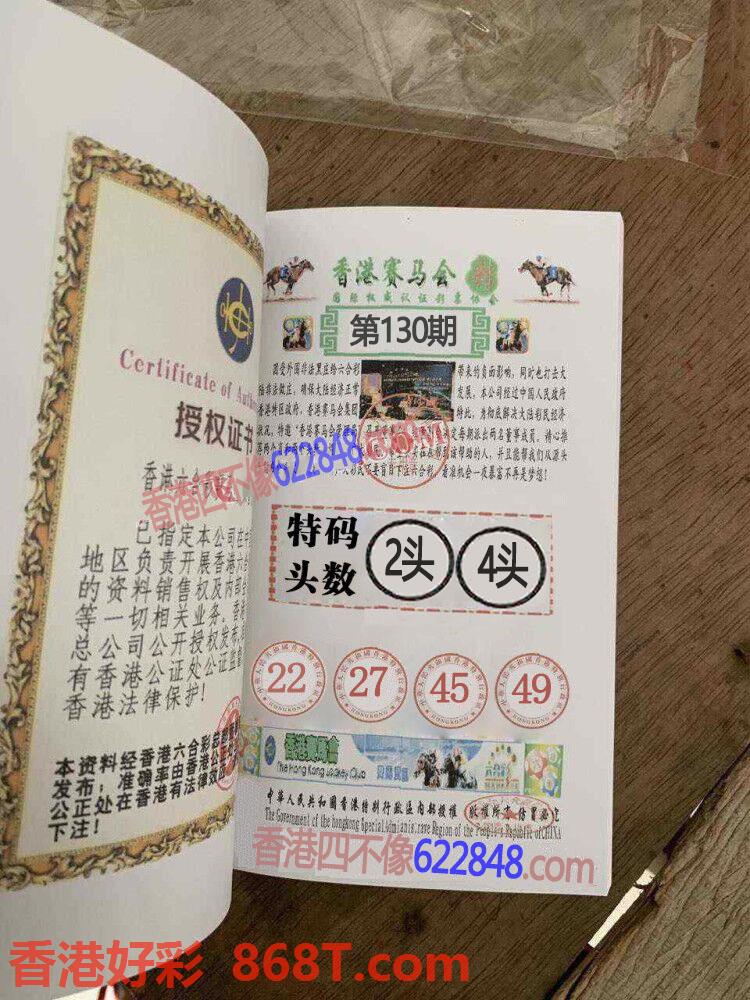 Certificate of Auth
授权证书
香港六合彩
已指定本公司在中
地区负责开展香港六合
的资料销售权及内部全
等一切相关业务。香港
总公司公开授权发布,
有香港公证处公证监督
香港法律保护!
本资料经香港六合彩总
发布;准确率由香港公
公正处在香港有法律效
下注!
香港赛马会
彩
国际权威认证彩票协会
第130期
因受外国非法黑庄给六合彩
带来的负面影响,同时也打击大
陆非法做庄,确保大陆经济正常
发展。本公司经过中国人民政府
香港特区政府,香港赛马会集团
特比,为彻底解决大陆彩民经济
状况,特邀
定每期派出两名董事成员,精心推
该帮助的人,并且能帮我们从源头
彩民不要盲目下注六合彩!看准机会一夜暴富不再是梦想!
香港四不像622848.com
特码
头数
2头
4头
22
27
45
49
HONGKONG
HONGKONG
HONGKONG
HONGKONG
香港赛马會
The Hong Kong Jockey Club
中華人民共和國香港特别行政區内部授權
版權所有 仿冒必究
The Government of the hongkong Special Admianis.rave Region of the People's Republic of CHINA
香港四不像622848.com
香港好彩 868T.com